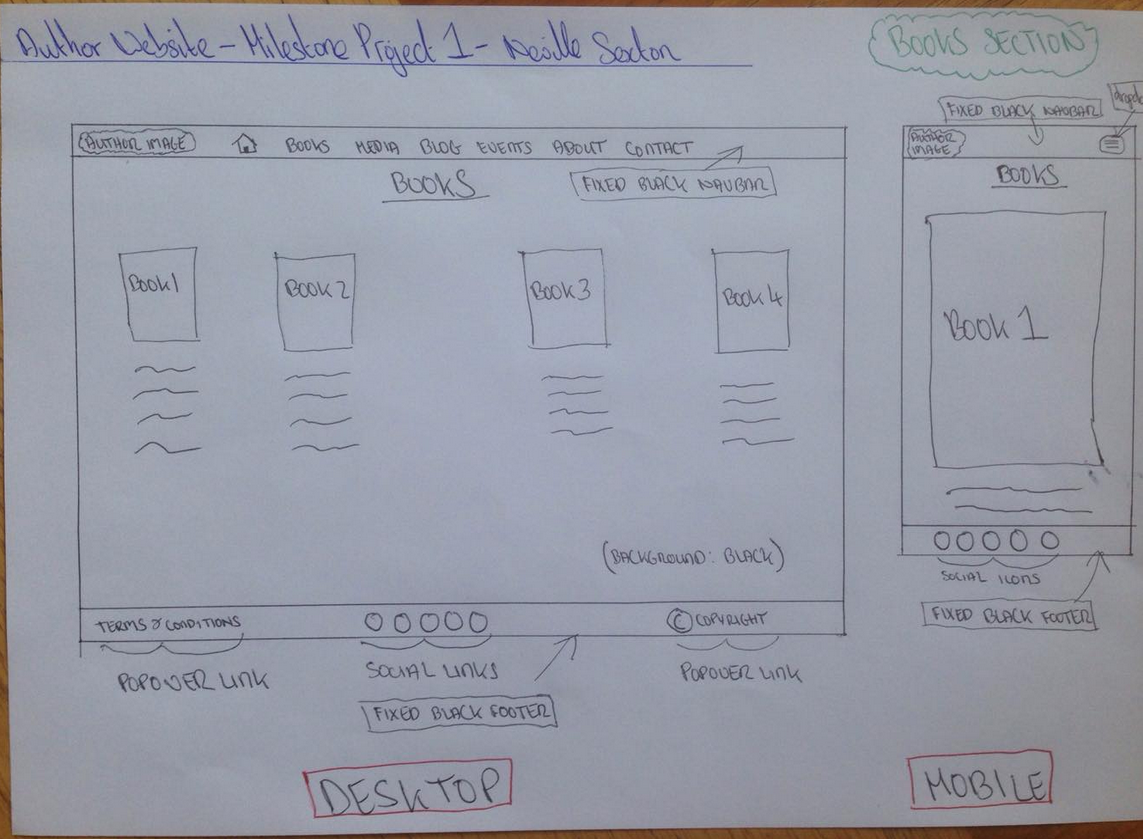 Author Website - Milestone Project 1 - Neville Sexton
BOOKS SECTION
AUTHOR IMAGE
BOOKS MEDIA BLOG EVENTS ABOUT CONTACT
BOOKS
FIXED BLACK NAVBAR
BOOK 1
BOOK 2
BOOK 3
BOOK 4
(BACKGROUND: BLACK)
TERMS & CONDITIONS
© COPYRIGHT
POPOVER LINK
SOCIAL LINKS
POPOVER LINK
FIXED BLACK FOOTER
DESKTOP
FIXED BLACK NAVBAR
AUTHOR
IMAGE
BOOKS
BOOK 1
SOCIAL ICONS
FIXED BLACK FOOTER
MOBILE